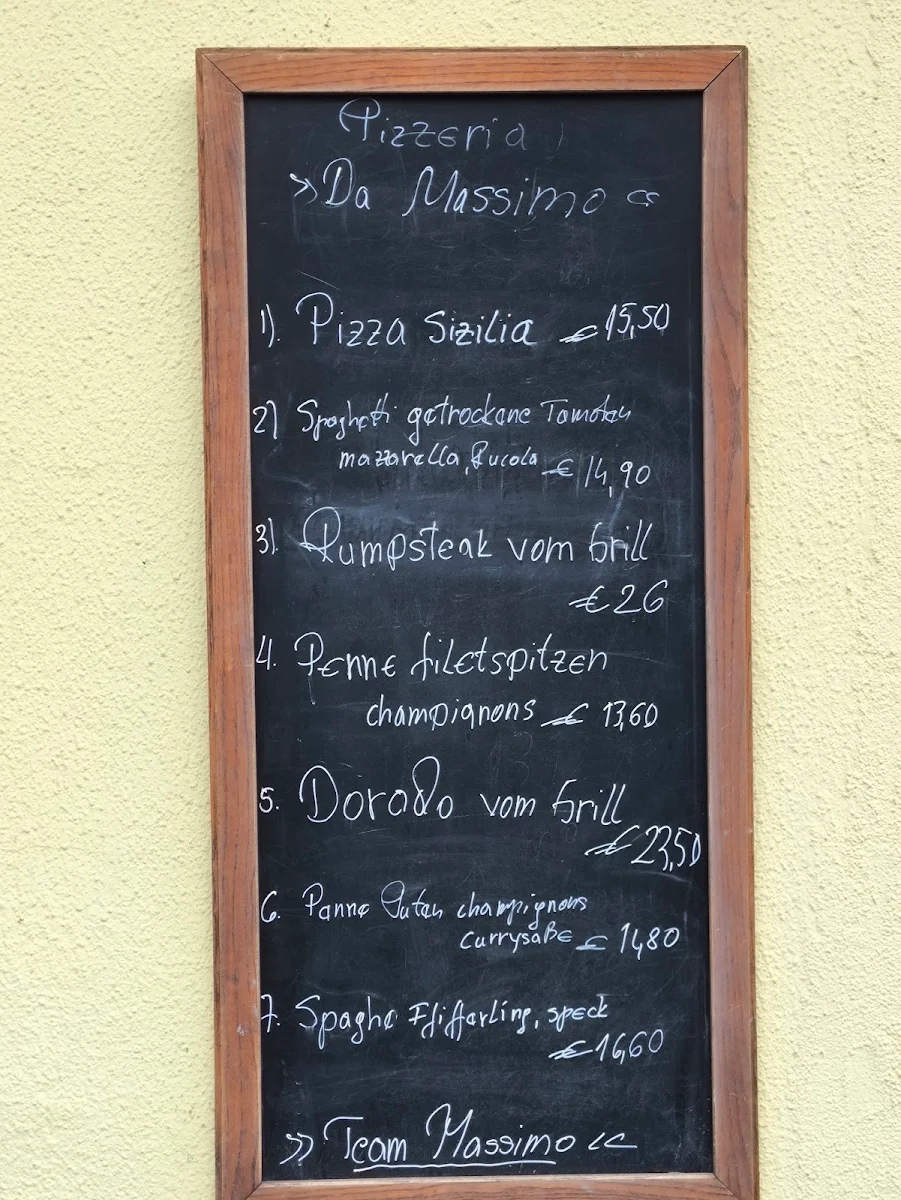 Pizzeria
»Da Massimo«
1). Pizza Sizilia € 15,50
2) Spaghetti getrockene Tomaten
mazzarella, Rucola € 14,90
3). Rumpsteak vom Grill
€ 26
4. Penne filetspitzen
champignons € 13,60
5. Dorado vom Grill
€ 23,50
6. Panne Puten champignons
currysaße € 14,80
7. Spaghe Pfifferling, speck
€ 16,60
» Team Massimo «